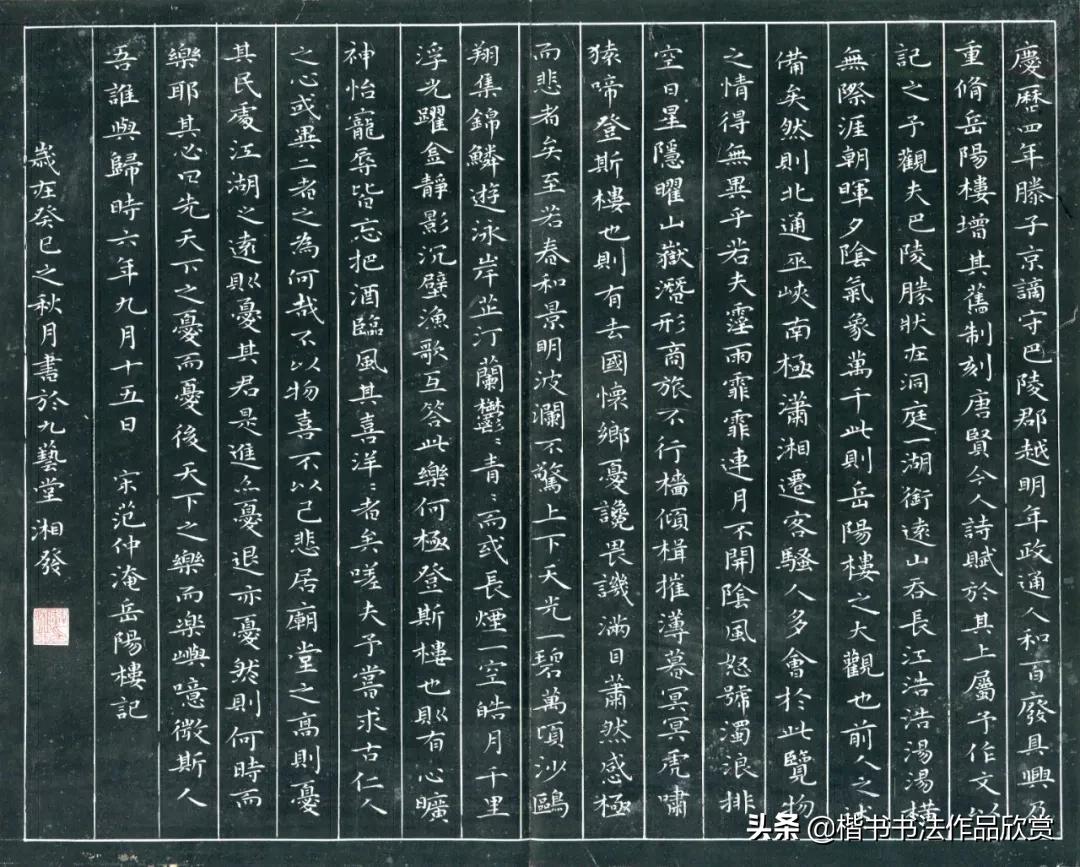 慶曆四年滕子京謫守巴陵郡越明年政通人和百廢具興乃
重脩岳陽樓增其舊制刻唐賢今人詩賦於其上屬予作文以
記之予觀夫巴陵勝狀在洞庭一湖銜遠山吞長江浩浩湯湯橫
無際涯朝暉夕陰氣象萬千此則岳陽樓之大觀也前人之述
備矣然則北通巫峽南極瀟湘遷客騷人多會於此覽物
之情得無異乎若夫霪雨霏霏連月不開陰風怒號濁浪排
空日星隱曜山嶽潛形商旅不行檣傾楫摧薄暮冥冥虎嘯
猿啼登斯樓也則有去國懷鄉憂讒畏譏滿目蕭然感極
而悲者矣至若春和景明波瀾不驚上下天光一碧萬頃沙鷗
翔集錦鱗遊泳岸芷汀蘭鬱〻青〻而或長煙一空皓月千里
浮光躍金靜影沉璧漁歌互答此樂何極登斯樓也則有心曠
神怡寵辱皆忘把酒臨風其喜洋〻者矣嗟夫予嘗求古仁人
之心或異二者之為何哉不以物喜不以己悲居廟堂之高則憂
其民處江湖之遠則憂其君是進亦憂退亦憂然則何時而
樂耶其必曰先天下之憂而憂後天下之樂而樂歟噫微斯人
吾誰與歸時六年九月十五日 宋范仲淹岳陽樓記
歲在癸巳之秋月書於九藝堂湘發
头条 @楷书书法作品欣赏